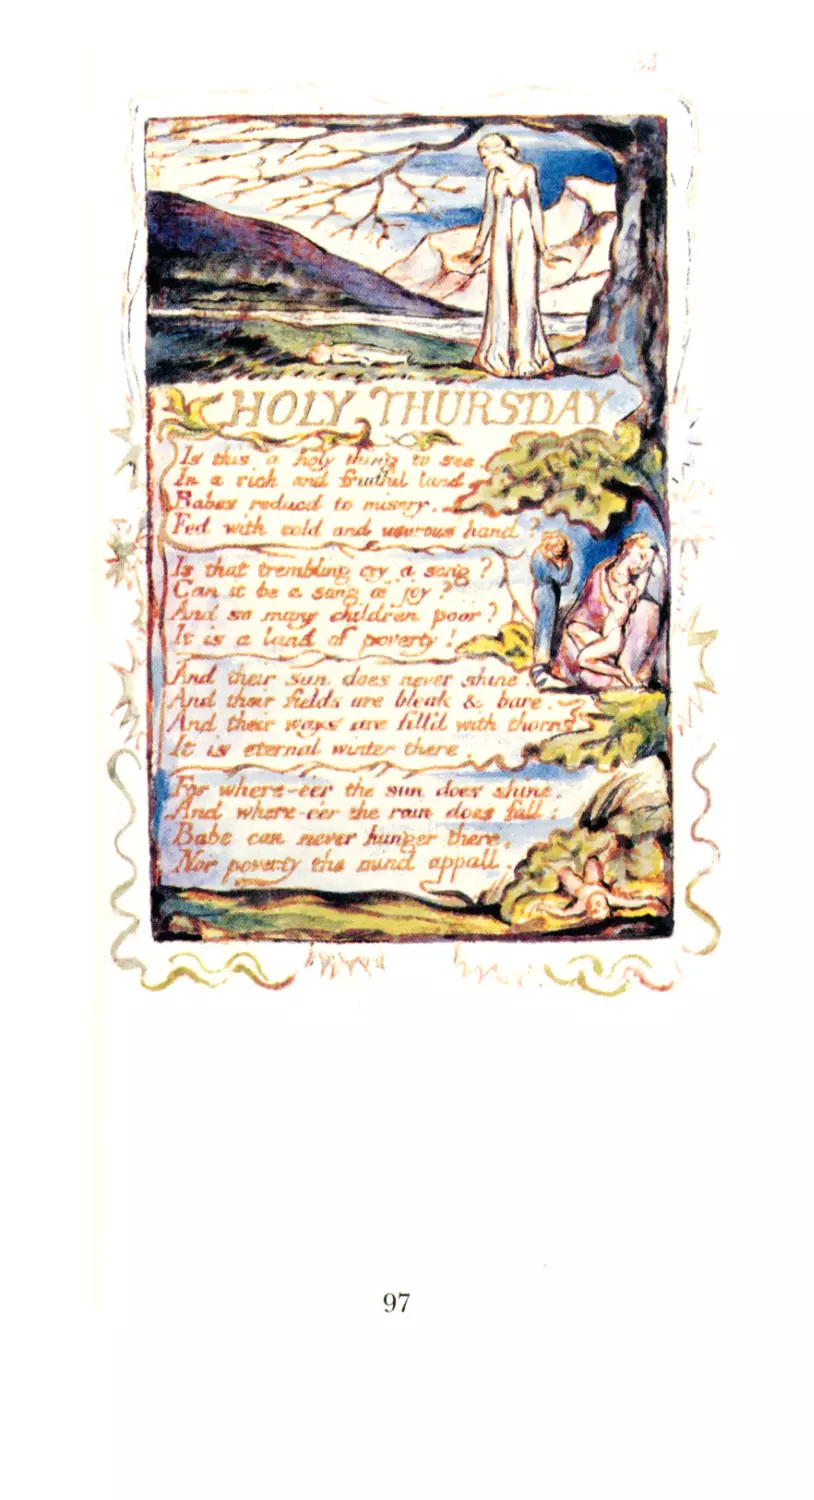 HOLY THURSDAY
Is this a holy thing to see,
In a rich and fruitful land,
Babes reduced to misery,
Fed with cold and usurous hand?
Is that trembling cry a song?
Can it be a song of joy?
And so many children poor?
It is a land of poverty!
And their sun does never shine.
And their fields are bleak & bare.
And their ways are fill'd with thorns
It is eternal winter there
For where-e'er the sun does shine,
And where-e'er the rain does fall:
Babe can never hunger there,
Nor poverty the mind appall.
97